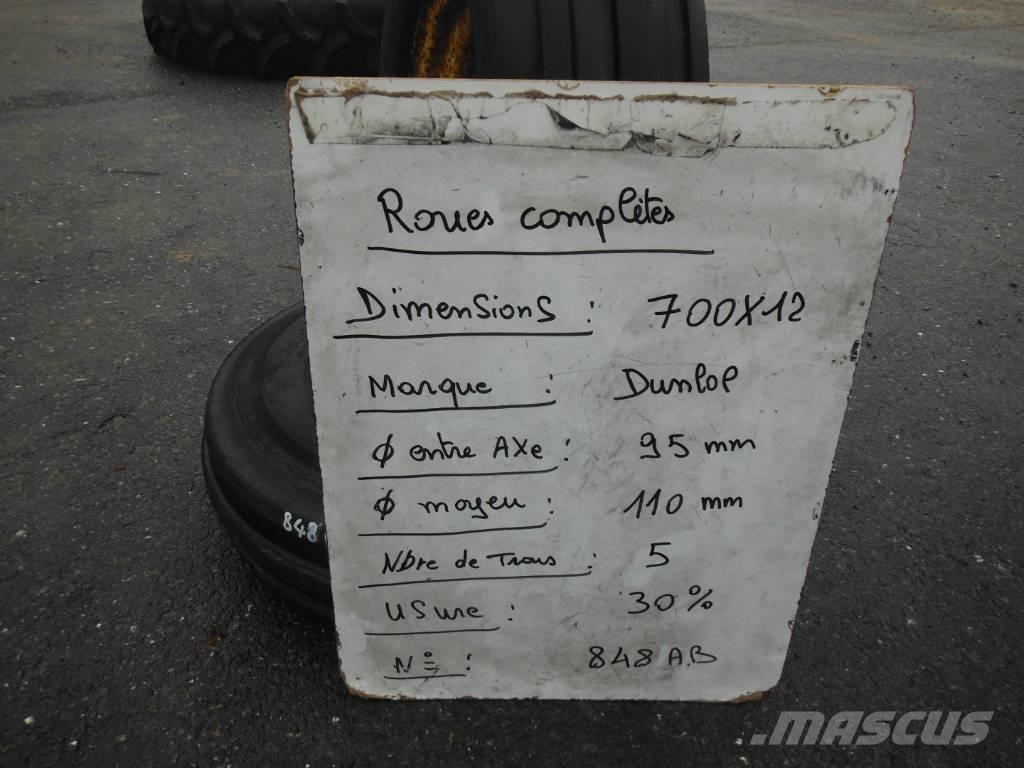 Roues complètes
Dimensions : 700X12
Marque : Dunlop
φ entre AXe : 95 mm
φ moyeu : 110 mm
Nbre de Trous : 5
USure : 30%
N° : 848 AB
848
.MASCUS